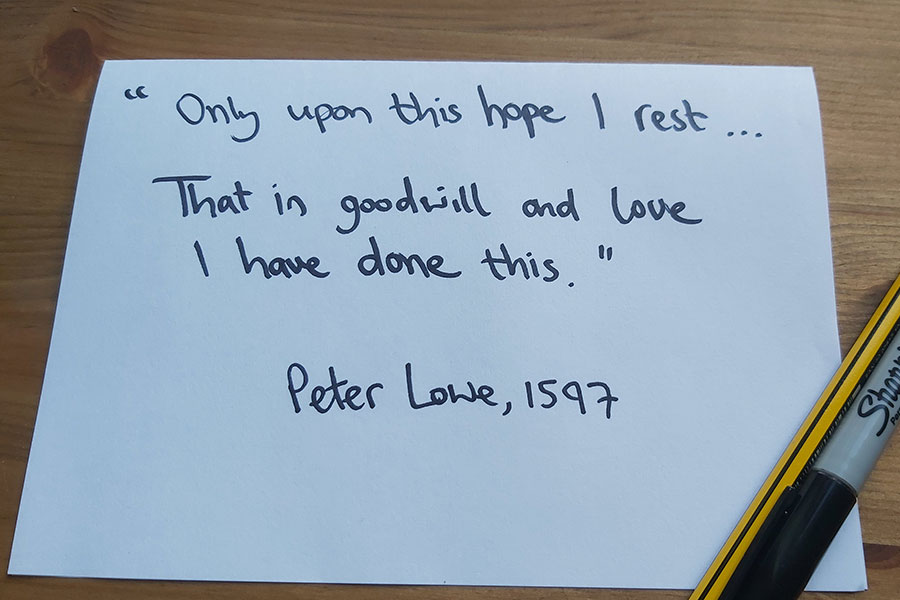 “ Only upon this hope I rest ...
That in goodwill and love
I have done this. ”
Peter Lowe, 1597